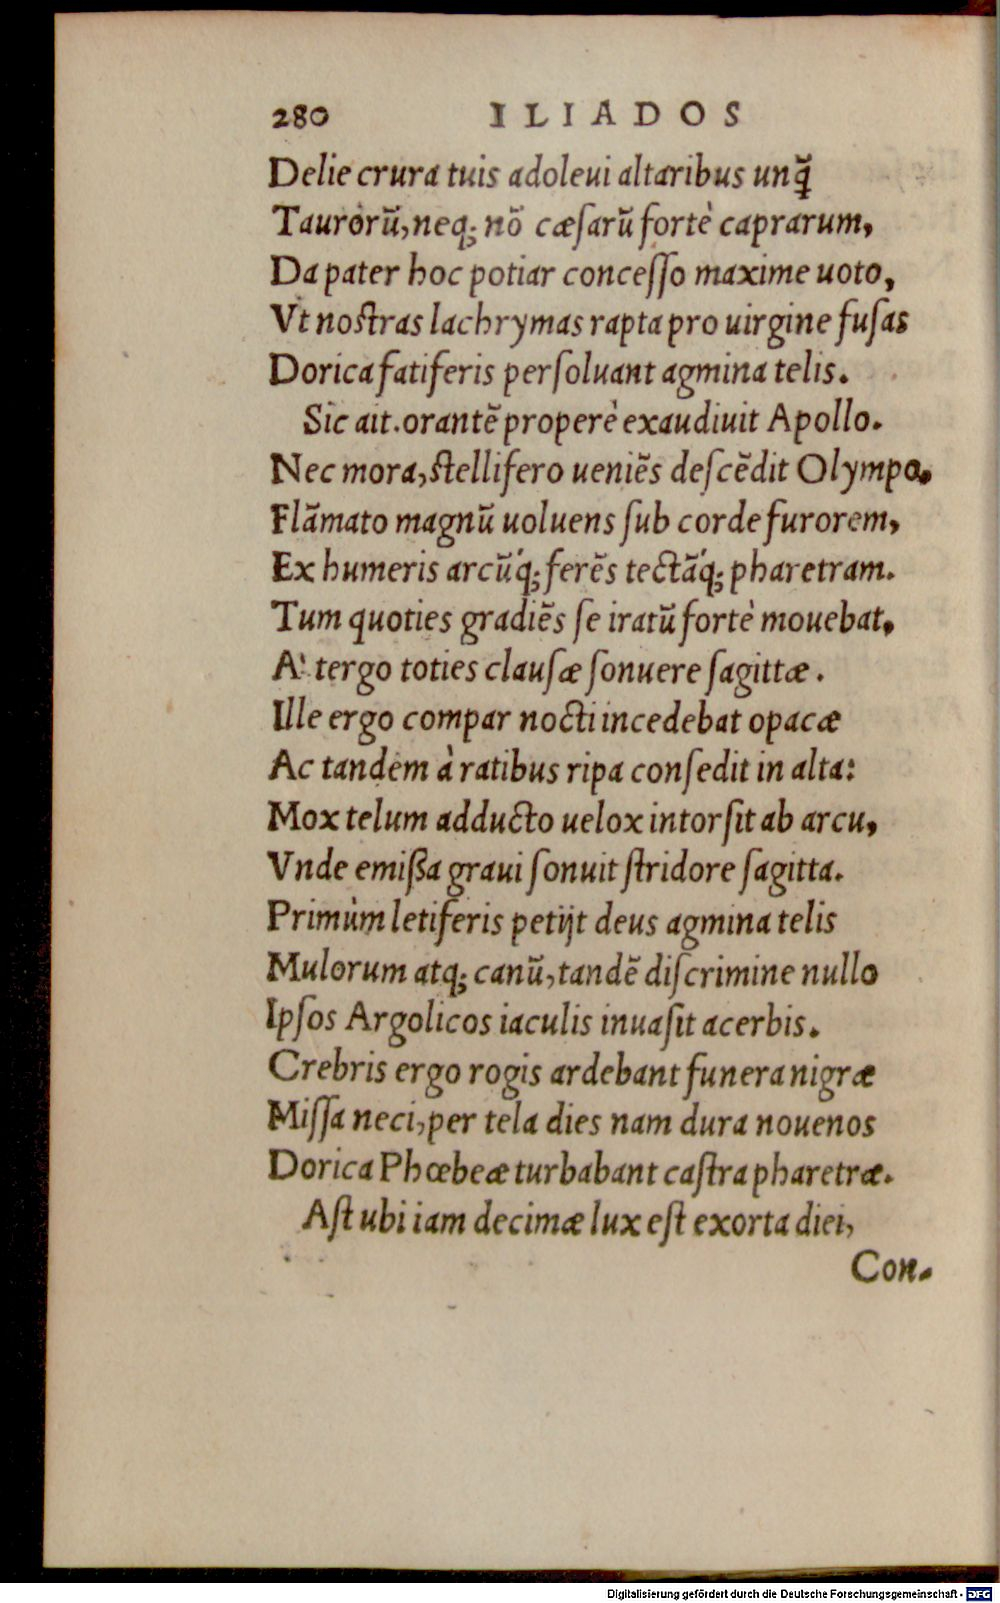 280 ILIADOS
Delie crura tuis adoleui altaribus unꝗ̃
Taurorũ, neq; nõ cæſarũ fortè caprarum,
Da pater hoc potiar conceſſo maxime uoto,
Vt noſtras lachrymas rapta pro uirgine fuſas
Dorica fatiferis perſoluant agmina telis.
Sic ait. orantẽ properè exaudiuit Apollo.
Nec mora, ſtellifero ueniẽs deſcẽdit Olympo.
Flãmato magnũ uoluens ſub corde furorem,
Ex humeris arcũq́; ferẽs tectãq́; pharetram.
Tum quoties gradiẽs ſe iratũ fortè mouebat,
A' tergo toties clauſæ ſonuere ſagittæ.
Ille ergo compar nocti incedebat opacæ
Ac tandem à ratibus ripa conſedit in alta:
Mox telum adducto uelox intorſit ab arcu,
Vnde emiſſa graui ſonuit ſtridore ſagitta.
Primùm letiferis petijt deus agmina telis
Mulorum atq; canũ, tandẽ diſcrimine nullo
Ipſos Argolicos iaculis inuaſit acerbis.
Crebris ergo rogis ardebant funera nigræ
Miſſa neci, per tela dies nam dura nouenos
Dorica Phœbeæ turbabant caſtra pharetræ.
Aſt ubi iam decimæ lux eſt exorta diei,
Con.
Digitalisierung gefördert durch die Deutsche Forschungsgemeinschaft - DFG